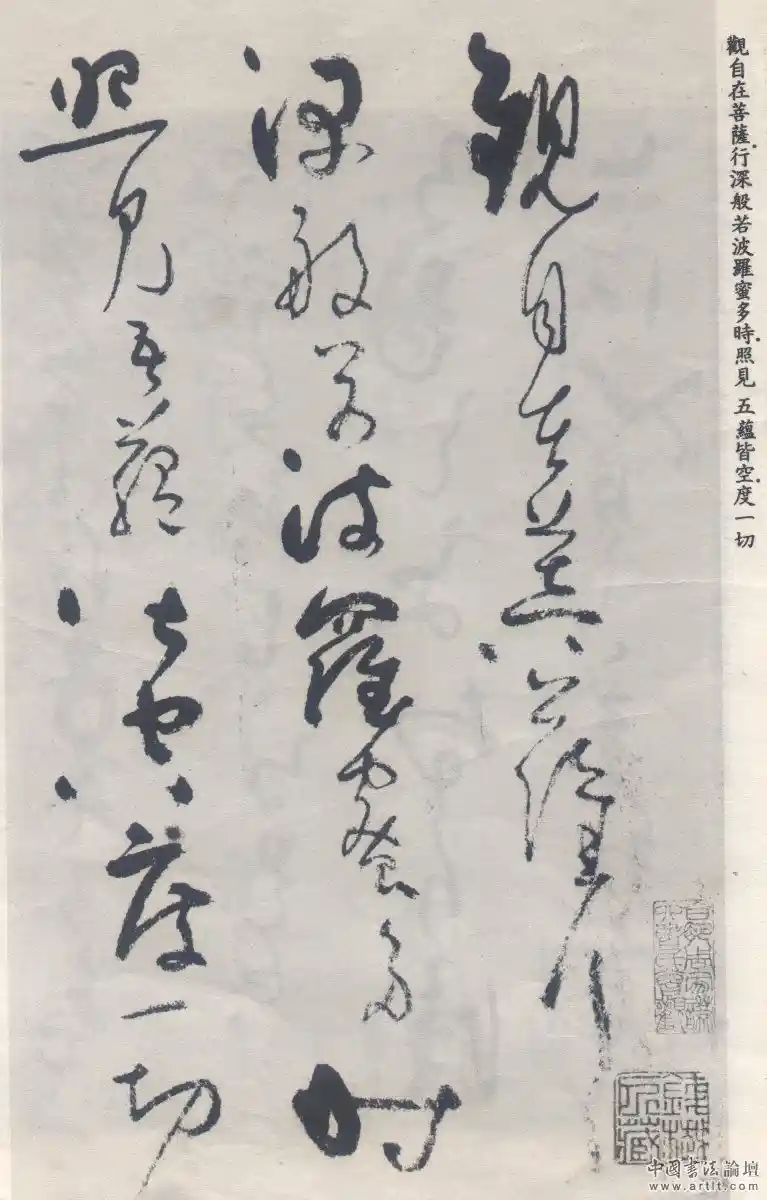 觀自在菩薩行深般若波羅蜜多時照見五蘊皆空度一切
觀自在菩薩行
深般若波羅蜜多時
照見五蘊皆空度一切
中國書法論壇
www.artlt.com